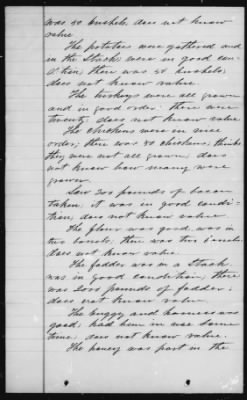 was 40 bushels, does not know
value
The potatoes were gathered and
in the stack, were in good con-
dition, there was 50 bushels;
does not know value.
The turkeys were all grown
and in good order. there were
twenty. does not know value
The chickens were in nice
order; there was 40 chickens, thinks
they were not all grown, does
not know how many were
grown.
Saw 300 pounds of bacon
taken, it was in good condi-
tion, does not know value.
The flour was good, was in
two barrels, there was two barrels
does not know value.
The fodder was in a stack
was in good condition, there
was 2000 pounds of fodder;
does not know value
The buggy and harness was
good; had him in use some
time. does not know value.
The honey was part in the